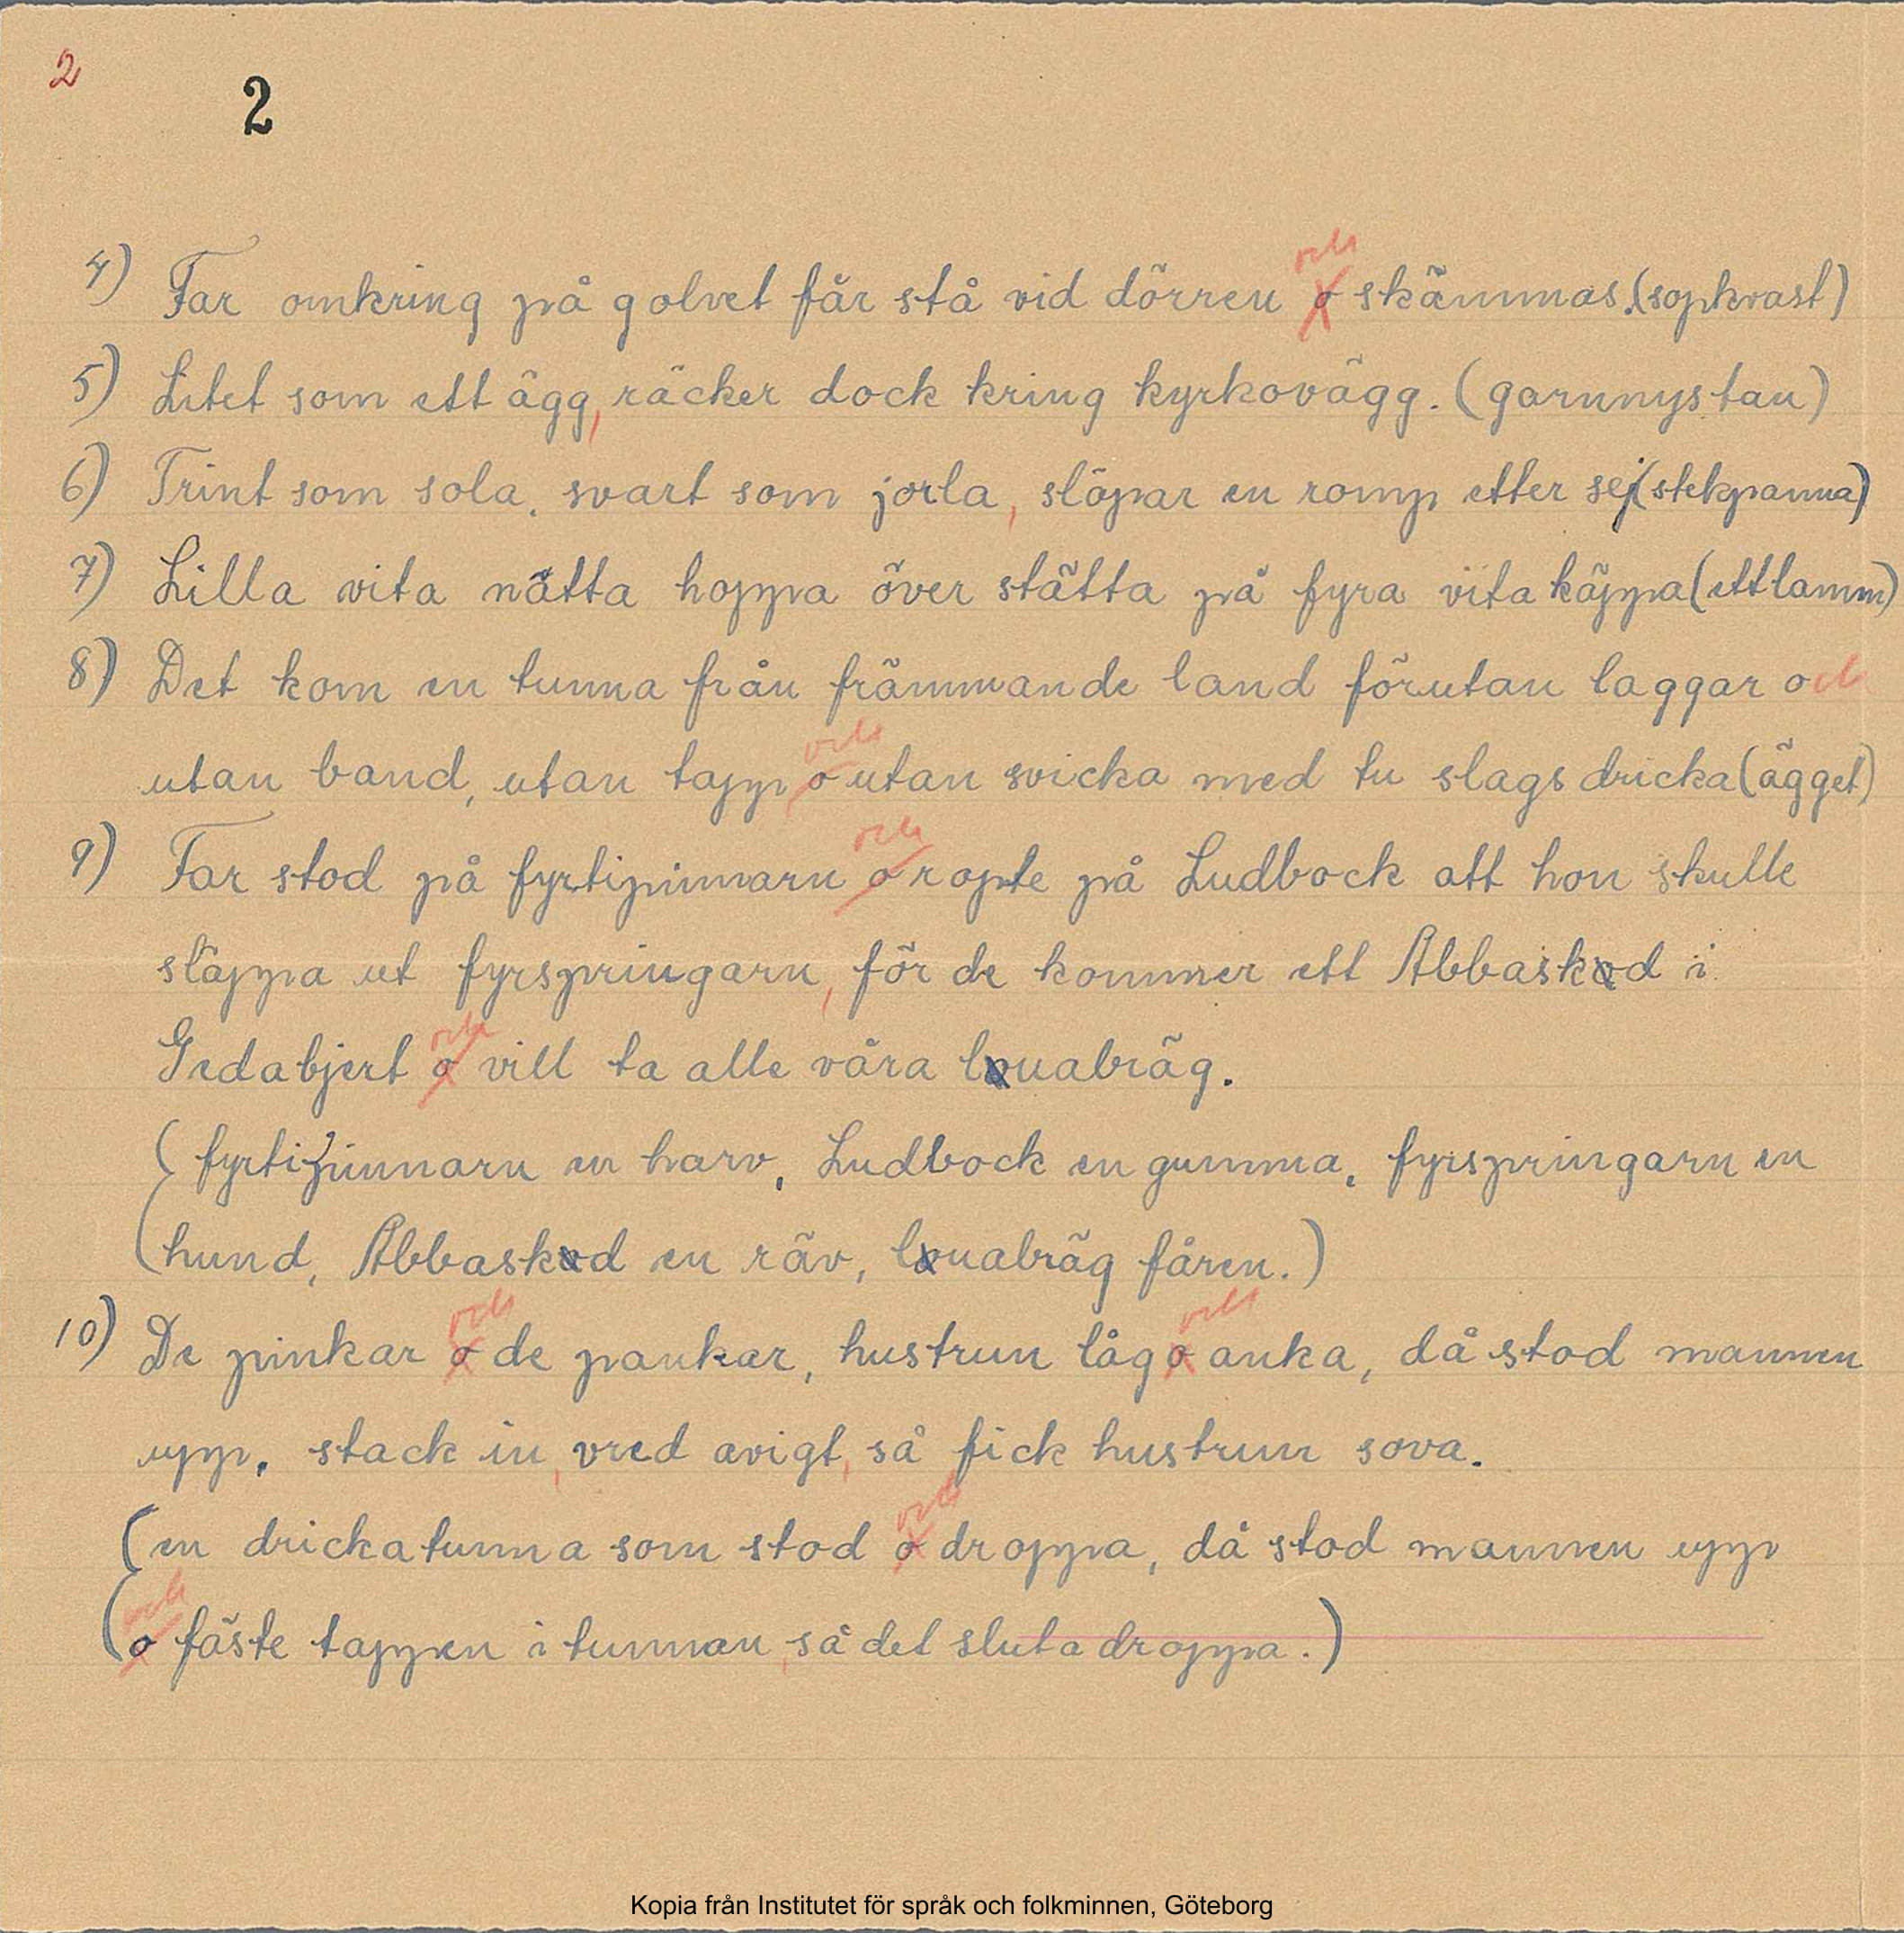 2
2
och
4) Far omkring på golvet får stå vid dörren o skämmas. (sopkvast)
5) Litet som ett ägg, räcker dock kring kyrkovägg. (garnnystan)
6) Trint som sola, svart som jorla, släpar en romp etter sej (stekpanna)
7) Lilla vita nätta hoppa över stätta på fyra vita käppa (ett lamm)
8) Det kom en tunna från främmande land förutan laggar och
och
utan band, utan tapp, o utan svicka med tu slags dricka (ägget)
och
9) Far stod på fyrtipinnarn o ropte på Ludbock att hon skulle
släppa ut fyrspringarn, för de kommer ett Abbaskod i
och
Gedabjert o vill ta alle våra louabräg.
(fyrtipinnarn en harv, Ludbock en gumma, fyrspringarn en
hund, Abbaskod en räv, louabräg fåren.)
och och
10) De pinkar o de pankar, hustrun låg o anka, då stod mannen
upp, stack in, vred avigt, så fick hustrun sova.
och
(en drickatunna som stod o droppa, då stod mannen upp
och
(o fäste tappen i tunnan, så det sluta droppa.)
Kopia från Institutet för språk och folkminnen, Göteborg